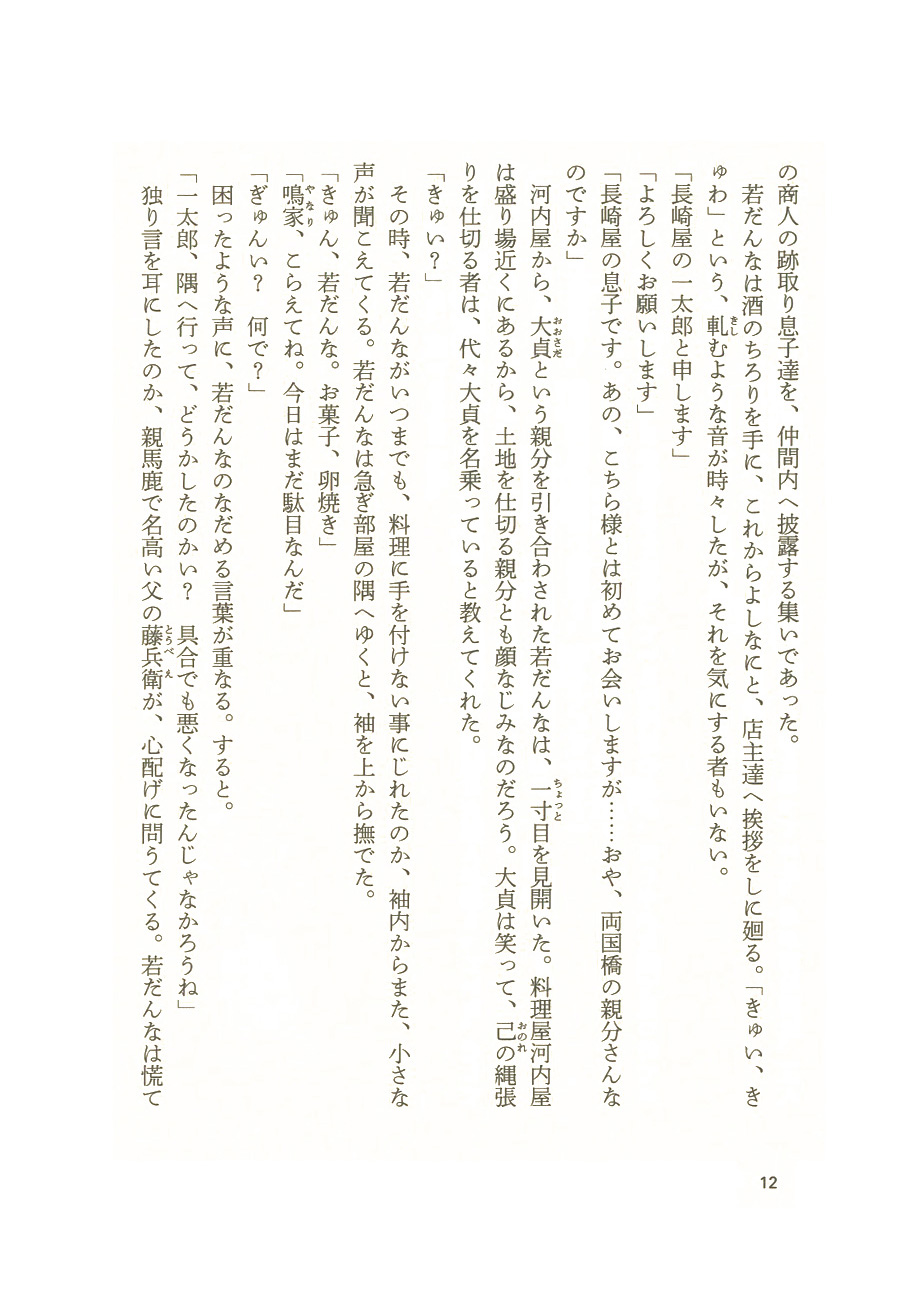 の商人の跡取り息子達を、仲間内へ披露する集いであった。
若だんなは酒のちろりを手に、これからよしなにと、店主達へ挨拶をしに廻る。「きゅい、き
ゅわ」という、軋むような音が時々したが、それを気にする者もいない。
「長崎屋の一太郎と申します」
「よろしくお願いします」
「長崎屋の息子です。あの、こちら様とは初めてお会いしますが……おや、両国橋の親分さんな
のですか」
河内屋から、大貞という親分を引き合わされた若だんなは、一寸目を見開いた。料理屋河内屋
は盛り場近くにあるから、土地を仕切る親分とも顔なじみなのだろう。大貞は笑って、己の縄張
りを仕切る者は、代々大貞を名乗っていると教えてくれた。
「きゅい？」
その時、若だんながいつまでも、料理に手を付けない事にじれたのか、袖内からまた、小さな
声が聞こえてくる。若だんなは急ぎ部屋の隅へゆくと、袖を上から撫でた。
「きゅん、若だんな。お菓子、卵焼き」
「鳴家、こらえてね。今日はまだ駄目なんだ」
「ぎゅんい？　何で？」
困ったような声に、若だんなのなだめる言葉が重なる。すると。
「一太郎、隅へ行って、どうかしたのかい？　具合でも悪くなったんじゃなかろうね」
独り言を耳にしたのか、親馬鹿で名高い父の藤兵衛が、心配げに問うてくる。若だんなは慌て
12